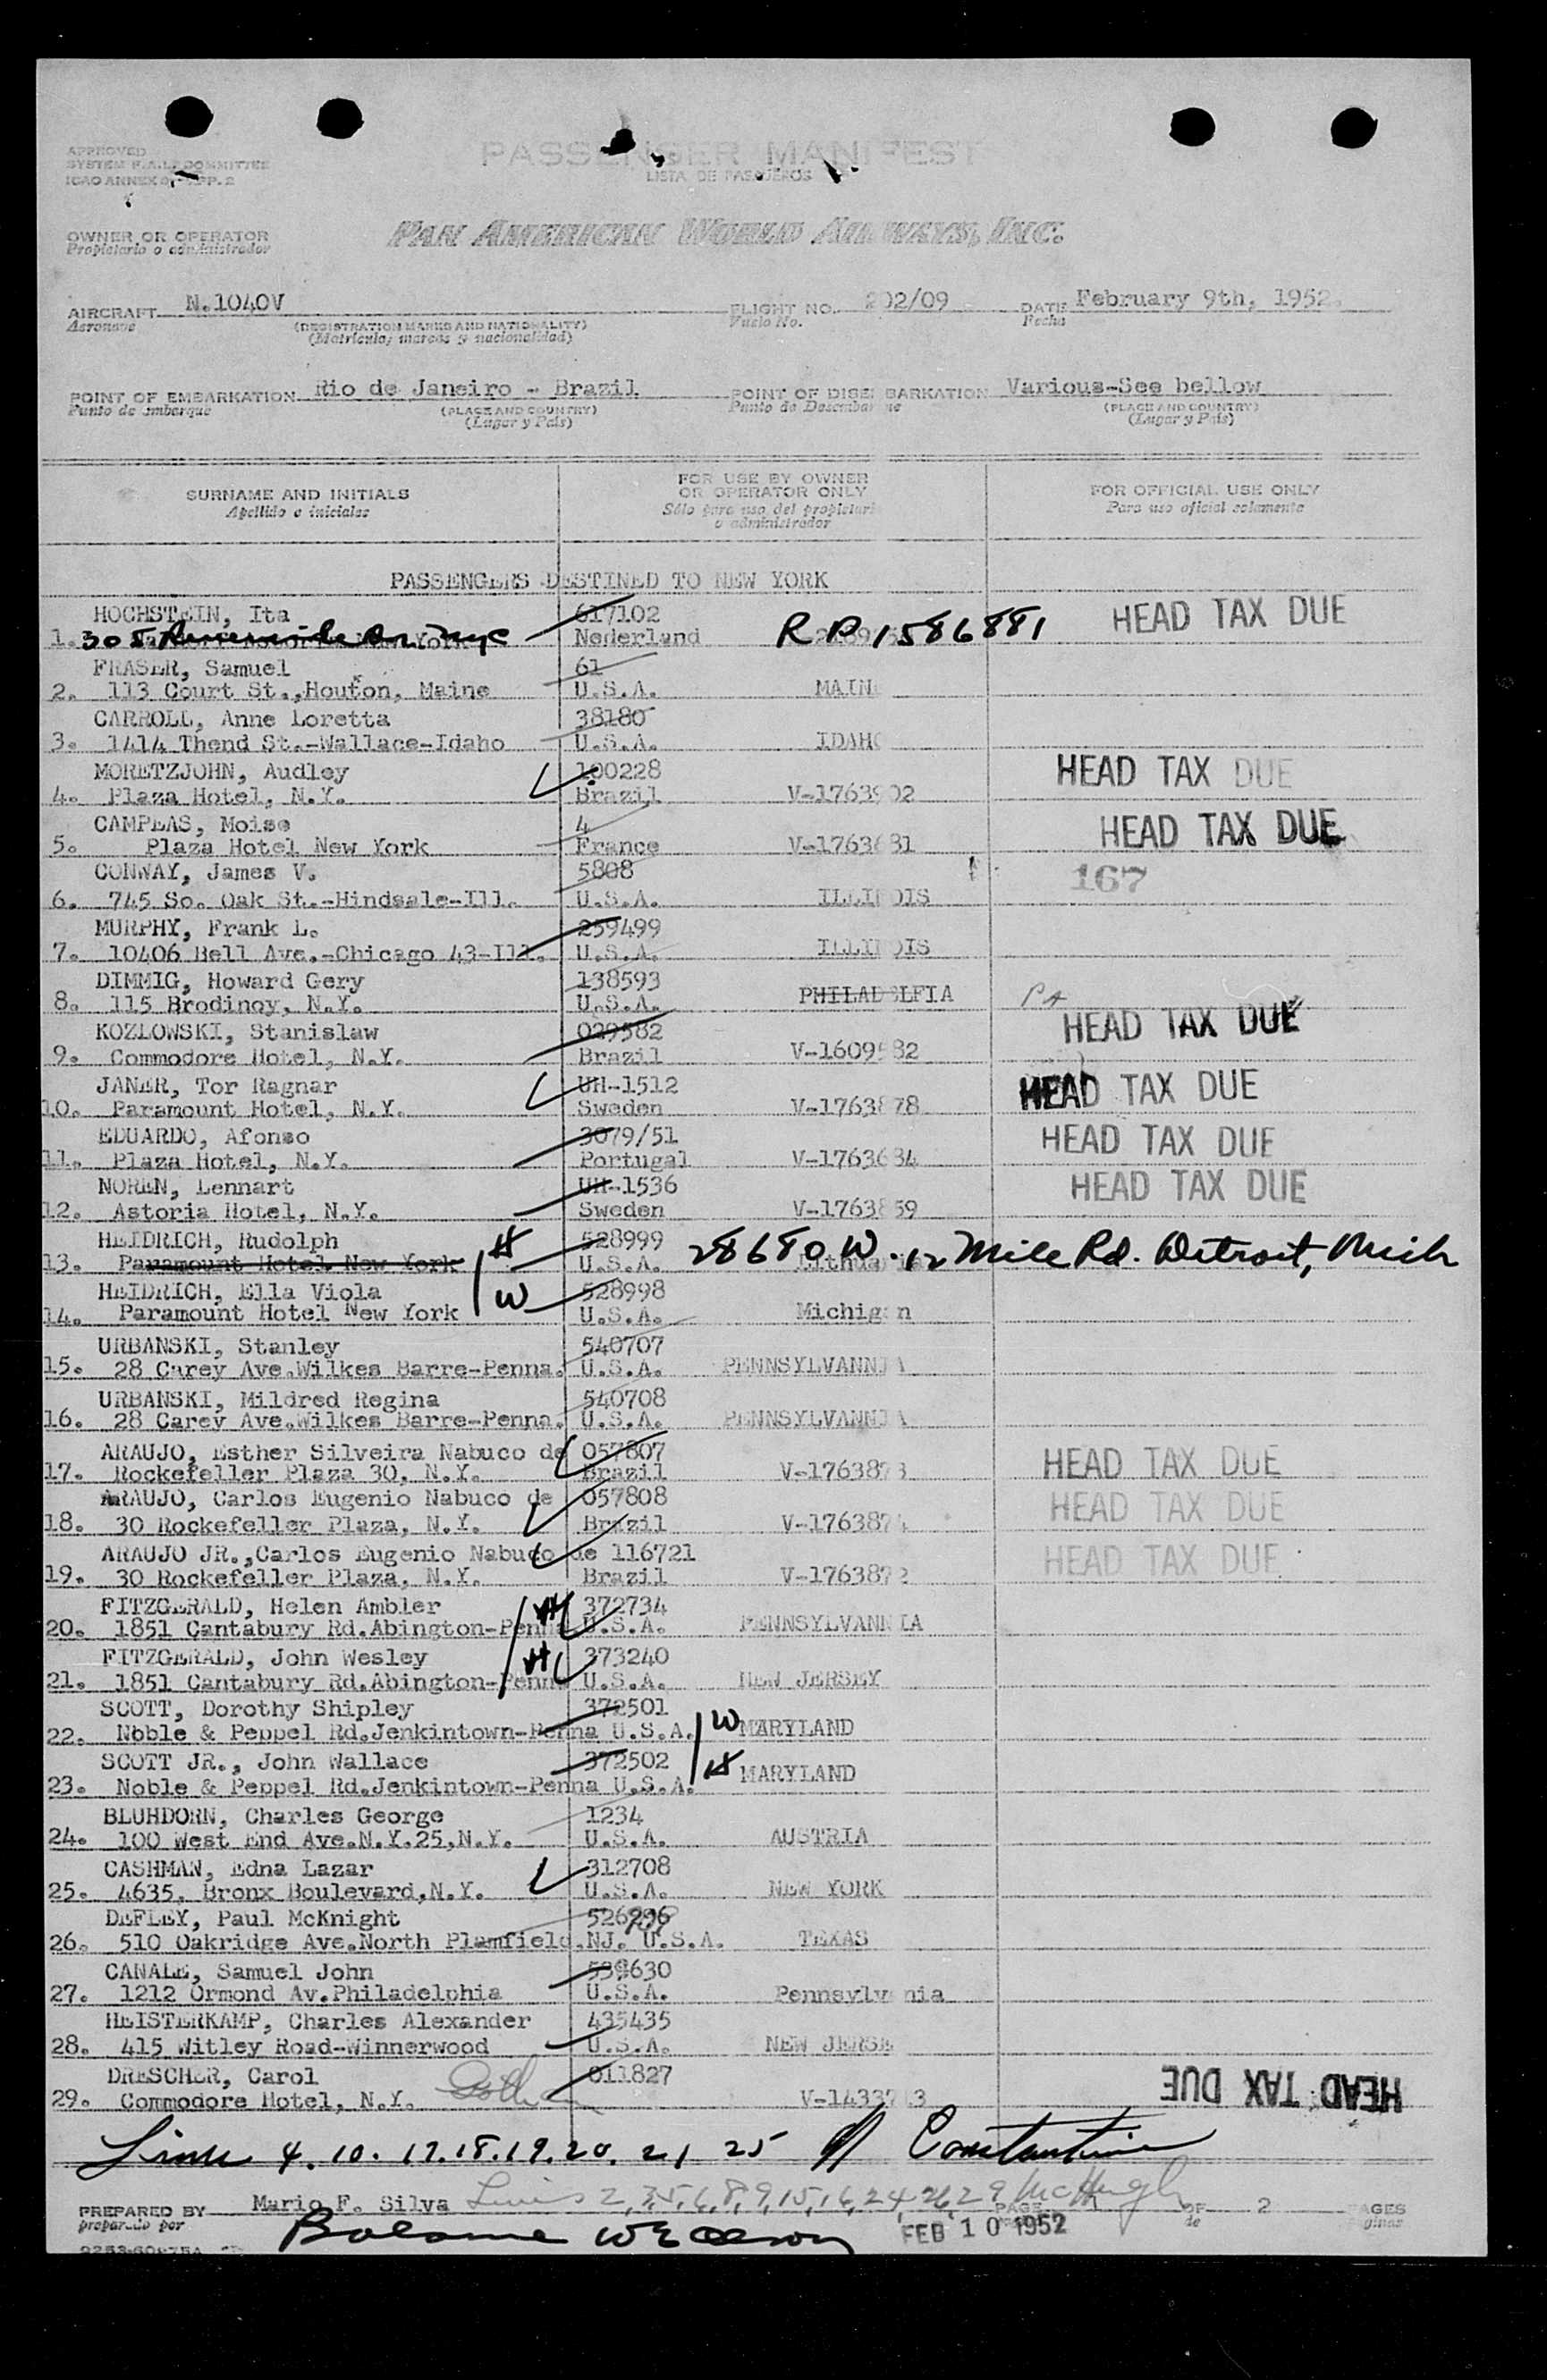 APPROVED
SYSTEM F.A.L. COMMITTEE
ICAO ANNEX 9, APP. 2
PASSENGER MANIFEST
LISTA DE PASAJEROS
OWNER OR OPERATOR
Propietario o administrador
PAN AMERICAN WORLD AIRWAYS, INC.
AIRCRAFT N.1040V FLIGHT NO. 202/09 DATE February 9th, 1952.
Aeronave (REGISTRATION MARKS AND NATIONALITY) Vuelo No. Fecha
(Matricula, marcas y nacionalidad)
POINT OF EMBARKATION Rio de Janeiro - Brazil POINT OF DISEMBARKATION Various-See bellow
Punto de embarque (PLACE AND COUNTRY) Punto de Desembarque (PLACE AND COUNTRY)
(Lugar y País) (Lugar y País)
SURNAME AND INITIALS FOR USE BY OWNER OR OPERATOR ONLY FOR OFFICIAL USE ONLY
Apellido e iniciales Sólo para uso del propietario o administrador Para uso oficial solamente
PASSENGERS DESTINED TO NEW YORK
HOCHSTEIN, Ita 617102 HEAD TAX DUE
1. 305 Riverside Dr. NYC Nederland R P 1586881
FRASER, Samuel 61
2. 113 Court St.,Houton, Maine U.S.A. MAINE
CARROLL, Anne Loretta 38180
3. 1414 Thend St.-Wallace-Idaho U.S.A. IDAHO
MORETZJOHN, Audley 100228 HEAD TAX DUE
4. Plaza Hotel, N.Y. Brazil V-1763902
CAMPEAS, Moise 4 HEAD TAX DUE
5. Plaza Hotel New York France V-1763681
CONWAY, James V. 5808 167
6. 745 So. Oak St.-Hindsale-Ill. U.S.A. ILLINOIS
MURPHY, Frank L. 259499
7. 10406 Bell Ave.-Chicago 43-Ill. U.S.A. ILLINOIS
DIMMIG, Howard Gery 138593
8. 115 Brodinoy, N.Y. U.S.A. PHILADELFIA PA
KOZLOWSKI, Stanislaw 029582 HEAD TAX DUE
9. Commodore Hotel, N.Y. Brazil V-1609582
JANER, Tor Ragnar UH-1512 HEAD TAX DUE
10. Paramount Hotel, N.Y. Sweden V-1763878
EDUARDO, Afonso 3079/51 HEAD TAX DUE
11. Plaza Hotel, N.Y. Portugal V-1763684
NOREN, Lennart UH-1536 HEAD TAX DUE
12. Astoria Hotel, N.Y. Sweden V-1763859
HEIDRICH, Rudolph H 528999 28680 W. 12 Mile Rd. Detroit, Mich
13. Paramount Hotel New York U.S.A. Lithuania
HEIDRICH, Ella Viola W 528998
14. Paramount Hotel New York U.S.A. Michigan
URBANSKI, Stanley 540707
15. 28 Carey Ave.Wilkes Barre-Penna. U.S.A. PENNSYLVANNIA
URBANSKI, Mildred Regina 540708
16. 28 Carey Ave.Wilkes Barre-Penna. U.S.A. PENNSYLVANNIA
ARAUJO, Esther Silveira Nabuco de 057807 HEAD TAX DUE
17. Rockefeller Plaza 30, N.Y. Brazil V-1763873
ARAUJO, Carlos Eugenio Nabuco de 057808 HEAD TAX DUE
18. 30 Rockefeller Plaza, N.Y. Brazil V-1763874
ARAUJO JR.,Carlos Eugenio Nabuco de 116721 HEAD TAX DUE
19. 30 Rockefeller Plaza, N.Y. Brazil V-1763872
FITZGERALD, Helen Ambler 372734
20. 1851 Cantabury Rd.Abington-Penna U.S.A. PENNSYLVANNIA
FITZGERALD, John Wesley H 373240
21. 1851 Cantabury Rd.Abington-Penna U.S.A. NEW JERSEY
SCOTT, Dorothy Shipley 372501
22. Noble & Peppel Rd.Jenkintown-Penna U.S.A. W MARYLAND
SCOTT JR., John Wallace 372502
23. Noble & Peppel Rd.Jenkintown-Penna U.S.A. H MARYLAND
BLUHDORN, Charles George 1234
24. 100 West End Ave.N.Y.25,N.Y. U.S.A. AUSTRIA
CASHMAN, Edna Lazar 312708
25. 4635, Bronx Boulevard,N.Y. U.S.A. NEW YORK
DEFLEY, Paul McKnight
26. 510 Oakridge Ave.North Plamfield.NJ. U.S.A. TEXAS
CANALE, Samuel John
27. 1212 Ormond Av.Philadelphia U.S.A. Pennsylvania
HEISTERKAMP, Charles Alexander 435435
28. 415 Witley Road-Winnerwood U.S.A. NEW JERSE
DRESCHER, Carol 011827 HEAD TAX DUE
29. Commodore Hotel, N.Y.
Lines 4. 10. 17. 18. 19. 20. 21 25 Constantine
PREPARED BY Mario F. Silva Lines 2,3,5,6,8,9,15,16,24,26,29 McHugh PAGE 1 OF 2 PAGES
preparado por FEB 10 1952 de